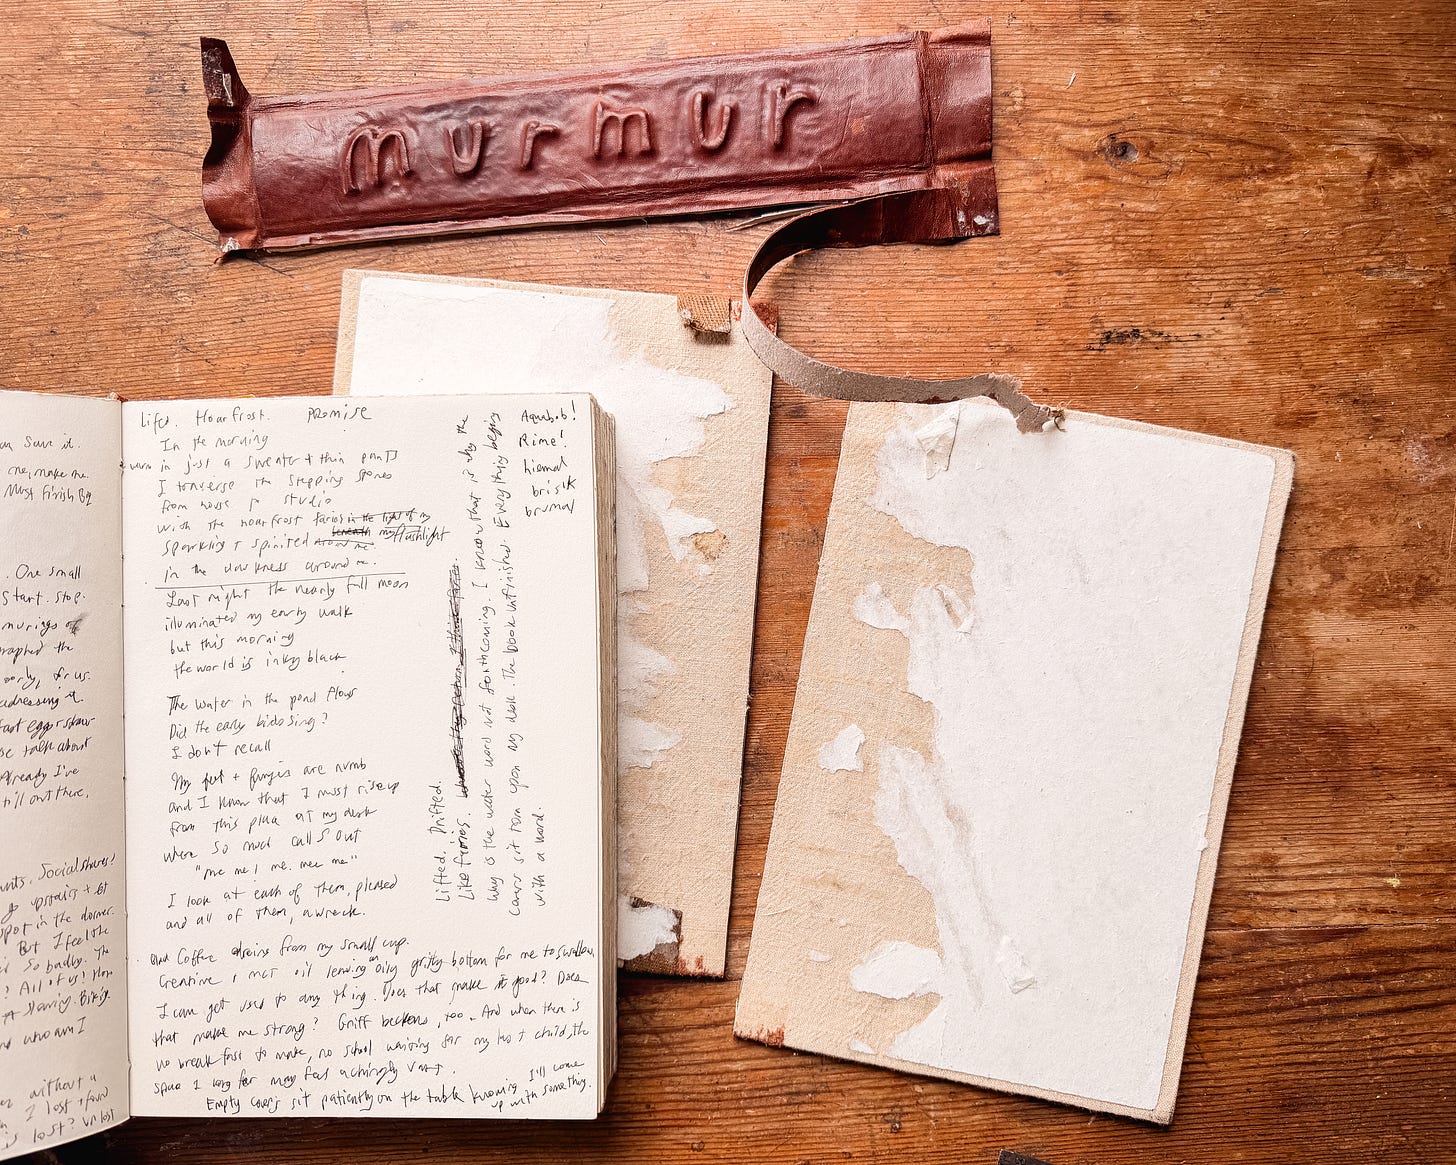 murmur
an save it.
me, make me.
Must Finish By
. One small
Start. Stop.
murings of
raphed the
oorly, for us.
adressing it.
fast eggs + straw
se talk about
Already I've
till out there.
unts. Social shares!
go upstairs + sit
spot in the dormer.
But I feel the
so badly. The
? All of us! How
who am I
without a
I lost + found
is lost? Un lost
Lifts. Hoarfrost. Promise
In the morning
warm in just a sweater + thin pants
I traverse the stepping stones
from house to studio
with the hoarfrost faries in the light of my
sparkling + spirited around me. beneath my flashlight
in the darkness around me.
Last night the nearly full moon
illuminated my early walk
but this morning
the world is inky black
The water in the pond flows
Did the early birds sing?
I don't recall
My feet + fingers are numb
and I know that I must rise up
from this place at my desk
where so much calls out
"me me! me. mee me"
I look at each of them, pleased
and all of them, a wreck.
Coffee drains from my small cup.
Creatine + MCT oil leaving an oily gritty bottom for me to swallow.
I can get used to any thing. Does that make it good? Does
that make me strong? Griff beckons, too. And when there is
no breakfast to make, no school waiting for my last child, the
space I long for may feel achingly vast.
Empty covers sit patiently on the table knowing I'll come
up with something.
Lifted. Drifted.
Like fairies.
Why is the water word not forthcoming. I know that is why the
covers sit torn upon my desk. The book unfinished. Everything begins
with a word.
Aquabob!
Rime!
hiemal
brisk
brumal